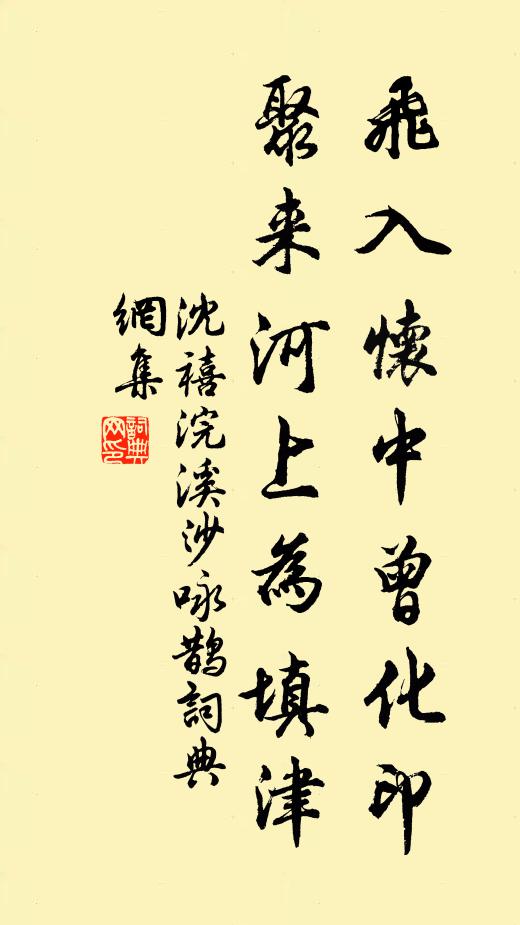 飛入懷中曾化印
聚来河上為填津
沈禧浣溪沙咏鵲詞典
網集
詞典
网印